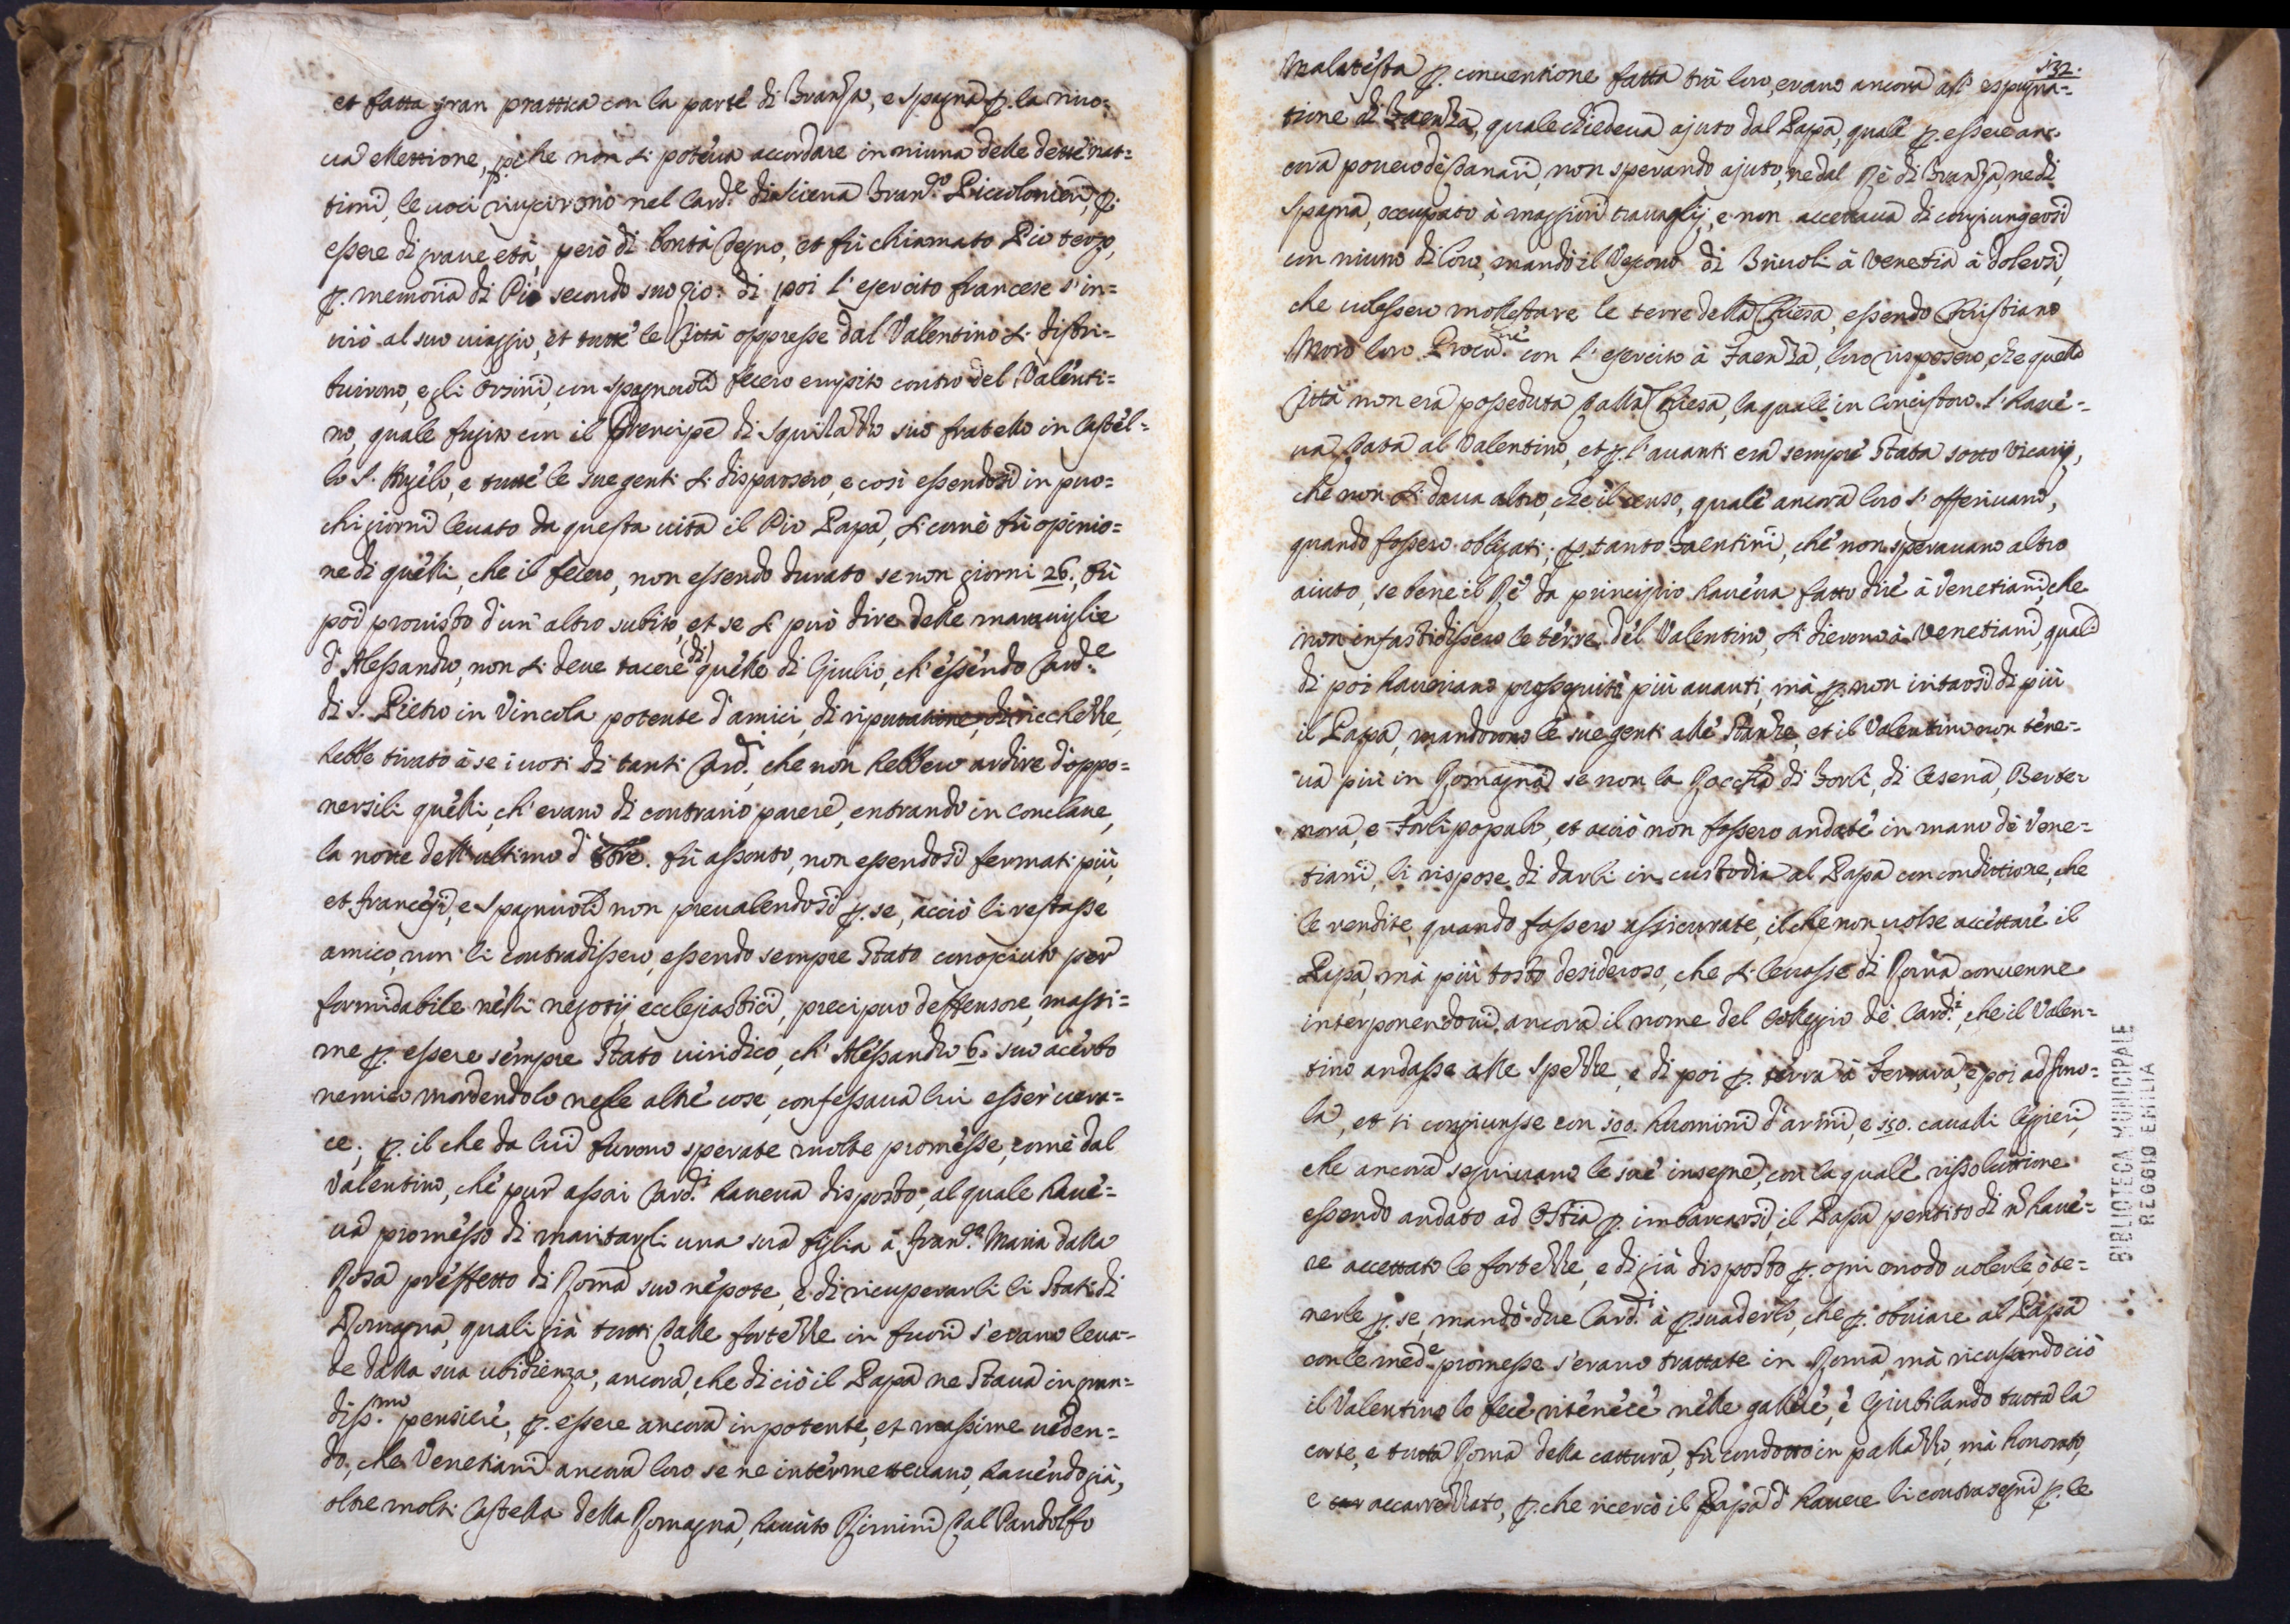 et fatta gran prattica con la parte di Franza, e Spagna p. la nuo=
ua elettione, p. che non si poteua accordare in niuna delle dette nat=
tioni, le uoci riuscirono nel Card.e di Siena Fran.co Piccolomini, p.
essere di graue età, però di bontà degno, et fù chiamato Pio terzo,
p. memoria di Pio secondo suo zio: di poi l'esercito francese s'in=
uiò al suo uiaggio, et tutte le Città oppresse dal Valentino si distri=
buirono, e gli Orsini, con Spagnuoli fecero empito contro del Valenti=
no, quale fugito con il Prencipe di Squillazzo suo fratello in Castel=
lo S. Angelo, e tutte le sue genti si disparsero, e così essendosi in puo=
chi giorni leuato da questa uita il Pio Papa, si come fù opinio=
ne di quelli, che il fecero, non essendo durato se non giorni 26., fù
poi prouisto d'un altro subito, et se si può dire delle marauiglie
d'Alessandro, non si deue tacere (di) quelle di Giulio, ch'essendo Card.e
di S. Pietro in Vincola potente d'amici, di riputatione, di ricchezze,
hebbe tirato à se i uoti di tanti Card.i che non hebbero ardire d'oppo=
nersili quelli, ch'erano di contrario parere, entrando in conclaue,
la notte dell'ultimo d'8bre. fù assonto, non essendosi fermati più,
et francesi, e Spagnuoli non preualendosi p. se, acciò li restasse
amico, non li contradissero, essendo sempre stato conosciuto per
formidabile nelli negotij ecclesiastici, precipuo deffensore, massi=
me p. essere sempre stato uiridico, ch'Alessandro 6. suo acerbo
nemico mordendolo nelle altre cose, confessaua lui esser uera=
ce; p. il che da lui furono sperate molte promesse, come dal
Valentino, che pur assai Card.i haueua disposto, al quale haue=
ua promesso di maritargli una sua figlia à Fran.co Maria dalla
Rosa preffetto di Roma suo nepote, e di ricuperarli li Stati di
Romagna, quali già tutti dalle fortezze in fuori s'erano leua=
te dalla sua ubidienza, ancora, che di ciò il Papa ne staua in gran=
diss.mo pensiere, p. essere ancora inpotente, et massime ueden=
do, che Venetiani ancora loro se ne intermetteuano, hauendo già,
oltre molti Castella della Romagna, hauuto Rimini dal Pandolfo
132.
Malatesta p. conuentione fatta trà loro, erano ancora all'espugna=
tione di Faenza, quale chiedeua ajuto dal Papa, quale p. essere an=
cora pouero de danari, non sperando ajuto, ne dal Rè di Franza, ne di
Spagna, occupato à maggiori trauaglij, e non accettaua di congiungersi
con niuno di loro, mandò il Vescouo di Triuoli à Venetia à dolersi,
che uolessero mollestare le terre della Chiesa, essendo Christiano
Moro loro Procu.re con l'esercito à Faenza, loro risposero, che quella
Città non era posseduta dalla Chiesa, la quale in Concistoro l'haue=
ua data al Valentino, et p. l'auanti era sempre stata sotto Vicarij,
che non si daua altro, che il censo, quale ancora loro s'offeriuano,
quando fossero obligati; p. tanto Faentini, che non sperauano altro
aiuto, se bene il Rè da principio haueua fatto dire à Venetiani, che
non infastidissero le terre del Valentino, si dierono à Venetiani, quali
di poi haueriano prosseguito più auanti, mà p. non iritarsi di più
il Papa, mandorono le sue genti alle stanze, et il Valentino non tene=
ua più in Romagna se non la Roccha di Forlì, di Cesena, Berte=
nora, e Forlipopulo, et acciò non fossero andate in mano de Vene=
tiani, li rispose di darli in custodia al Papa con conditione, che
le rendite, quando fossero assicurate, il che non uolse accettare il
Papa, mà più tosto desideroso, che si leuasse di Roma conuenne
interponendoui ancora il nome del Colleggio de Card.i, che il Valen=
tino andasse alle Spezze, e di poi p. terra à Ferrara, e poi ad Imo=
la, et si congiunsse con 100. huomini d'armi, e 150. caualli leggieri,
che ancora seguiuano le sue insegne, con la quale rissolutione
essendo andato ad Ostia p. imbarcarsi, il Papa pentito di n haue=
re accettato le fortezze, e di già disposto p. ogni modo uolerle, ò te=
nerle p. se, mandò due Card.i à p.suaderlo, che p. obuiare al Papa
con le med.e promesse s'erano trattate in Roma, mà ricusando ciò
il Valentino lo fece ritenere nelle gallere, e Giubilando tutta la
corte, e tutta Roma della cattura, fù condotto in pallazzo, mà honorato,
e accarrezzato, p. che ricercò il Papa d'hauere li contrasegni p. le
BIBLIOTECA MUNICIPALE
REGGIO EMILIA